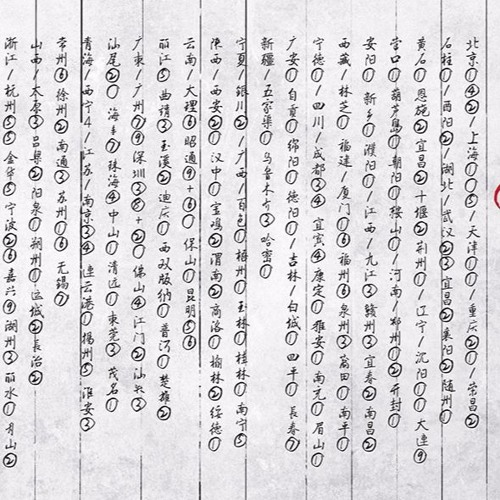 北京①④②/上海①⓪⑤/天津①①/重庆②⓪/荣昌②
石柱①/酉阳②/湖北/武汉②③宜昌②襄阳②随州①
黄石①恩施②宜昌②十堰②荆州①/辽宁/沈阳①①大连⑨
营口①葫芦岛①朝阳①鞍山①/河南/郑州①②开封①
安阳①新乡①濮阳①/江西/九江③赣州③宜春②南昌②
西藏/林芝①福建/厦门①⑥福州⑥泉州③莆田①南平①
宁德①/四川/成都③④宜宾④康定①雅安①南充①眉山①
广安①自贡①绵阳①德阳①/吉林/白城①四平①长春⑦
新疆/五家渠①乌鲁木齐③哈密①
宁夏/银川②/广西/百色①梧州①玉林①桂林①南宁⑤
陕西/西安②汉中①宝鸡②渭南②商洛①榆林②绥德①
云南/大理⑥昭通⑨+⑥①保山①昆明⑤⑥
丽江⑤曲靖③玉溪②迪庆①西双版纳①普洱①楚雄②
广东/广州⑦⑨深圳③⑧+②①佛山④江门②汕头③
汕尾②①海丰⑦珠海④中山①清远①东莞③茂名①
青海/西宁4/江苏/南京③④连云港①扬州⑤淮安③
常州⑥徐州②南通③苏州①⑥无锡⑦
山西/太原③吕梁②阳泉①朔州①运城②长治②
浙江/杭州⑤⑤金华⑤宁波②⑥嘉兴⑨湖州③丽水①舟山②